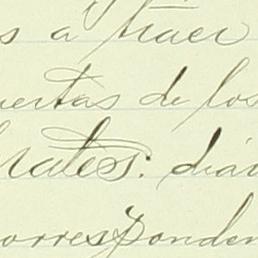 s a traer
uertas de los
rates: diar
orresponden